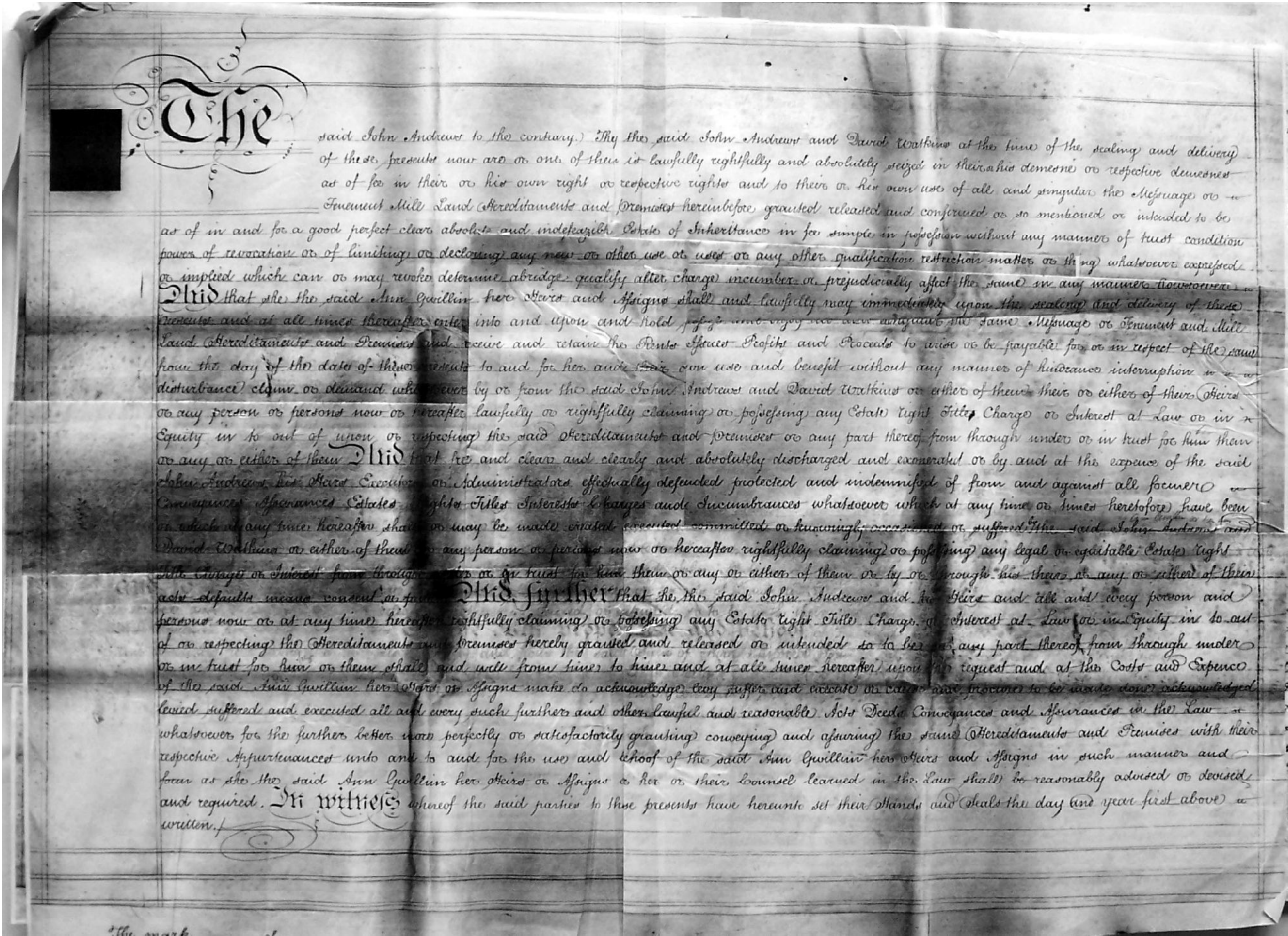 The
said John Andrews to the contrary) They the said John Andrews and David Watkins at the time of the sealing and delivery
of these presents now are or one of them is lawfully rightfully and absolutely seized in their or his demesne or respective demesnes
as of fee in their or his own right or respective rights and to their or his own use of all and singular the Messuage or
Tenement Mill Land Hereditaments and Premises hereinbefore granted released and confirmed or so mentioned or intended to be
as of in and for a good perfect clear absolute and indefeazible Estate of Inheritance in fee simple in possession without any manner of trust condition
power of revocation or of limiting or declaring any new or other use or uses or any other qualification restriction matter or thing whatsoever expressed
or implied which can or may revoke determine abridge qualify alter charge incumber or prejudicially affect the same in any manner howsoever
And that she the said Ann Gwillin her Heirs and Assigns shall and lawfully may immediately upon the sealing and delivery of these
presents and at all times thereafter enter into and upon and hold the same Messuage or Tenement and Mill
Land Hereditaments and Premises and receive and retain the Rents Issues Profits and Proceeds to arise or be payable for or in respect of the same
from the day of the date of these presents to and for her and own use and benefit without any manner of hindrance interruption
disturbance claim or demand whatsoever by or from the said John Andrews and David Watkins or either of them their or either of their Heirs
or any person or persons now or hereafter lawfully or rightfully claiming or possessing any Estate right Title Charge or Interest at Law or in
Equity in to out of upon or respecting the said Hereditaments and Premises or any part thereof from through under or in trust for him them
or any or either of them And that free and clear and clearly and absolutely discharged and exonerated or by and at the expence of the said
John Andrews his Heirs Executors or Administrators effectually defended protected and indemnified of from and against all former
Conveyances Assurances Estates Rights Titles Interests Charges and Incumbrances whatsoever which at any time or times heretofore have been
or which at any time hereafter shall or may be made created executed committed or knowingly occasioned or suffered the said John Andrews and
David Watkins or either of them or any person or persons now or hereafter rightfully claiming or possessing any legal or equitable Estate right
Title Charge or Interest from through under or in trust for him them or any or either of them or by or through his their or any or either of their
acts defaults means consent or And further that he the said John Andrews and his Heirs and all and every person and
persons now or at any time hereafter rightfully claiming or possessing any Estate right Title Charge or Interest at Law or in Equity in to out
of or respecting the Hereditaments and premises hereby granted and released or intended so to be or any part thereof from through under
or in trust for him or them shall and will from time to time and at all times hereafter upon the request and at the Costs and Expence
of the said Ann Gwillin her Heirs or Assigns make do acknowledge levy suffer and execute or cause and procure to be made done acknowledged
levied suffered and executed all and every such further and other lawful and reasonable Acts Deeds Conveyances and Assurances in the Law
whatsoever for the further better more perfectly or satisfactorily granting conveying and assuring the same Hereditaments and Premises with their
respective Appurtenances unto and to and for the use and behoof of the said Ann Gwillin her Heirs and Assigns in such manner and
form as she the said Ann Gwillin her Heirs or Assigns or her or their Counsel learned in the Law shall be reasonably advised or devised
and required. In witness whereof the said parties to these presents have hereunto set their Hands and Seals the day and year first above
written./
The mark of